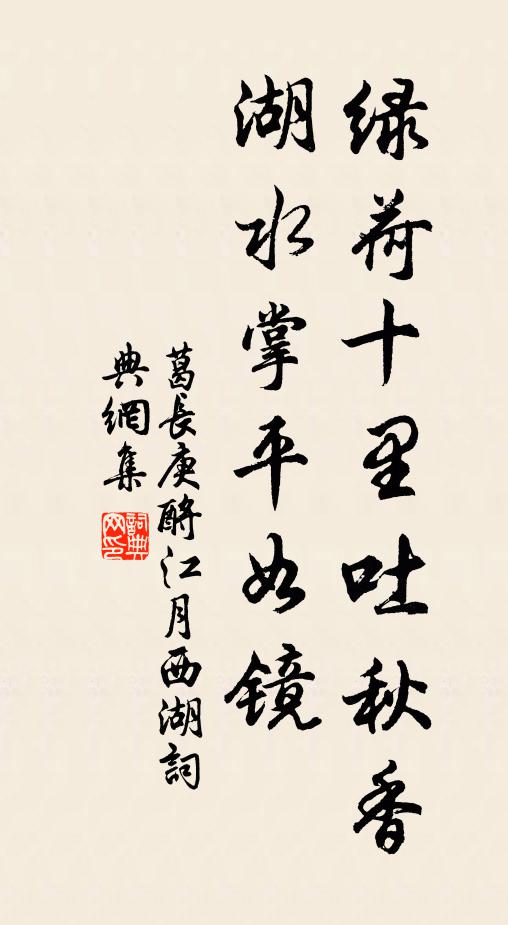 绿荷十里吐秋香
湖水掌平如镜
葛長庚酹江月西湖詞
典網集
詞典網印